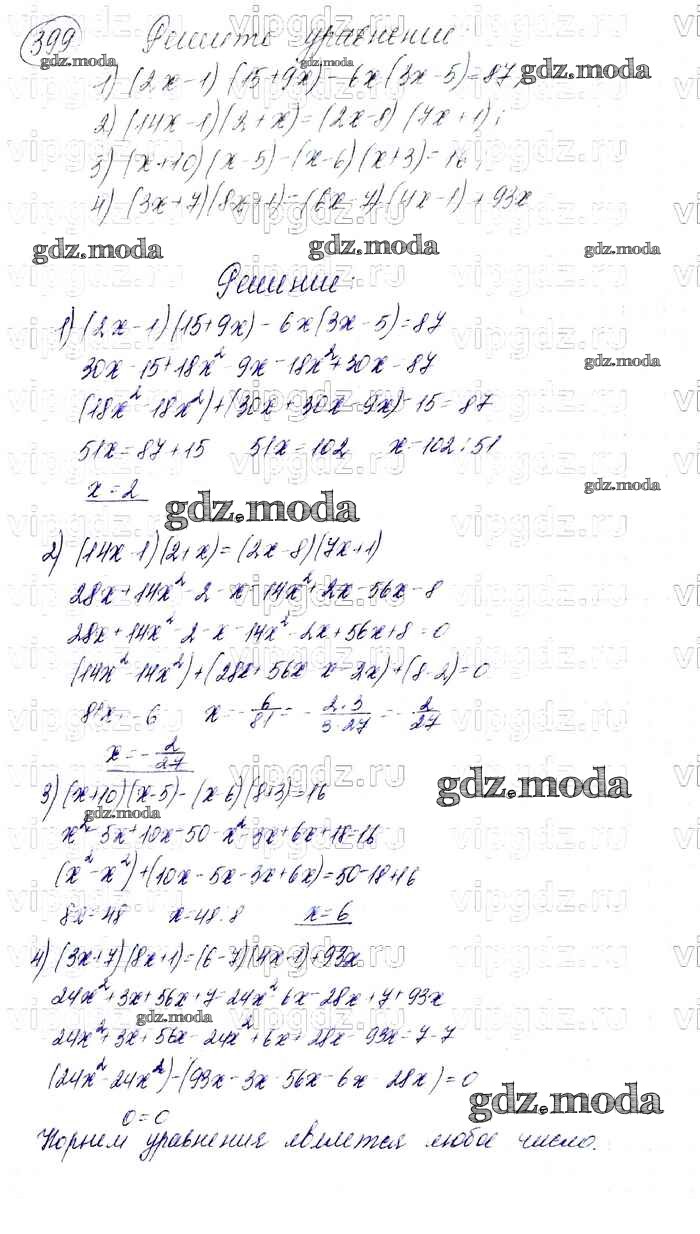 399 Решите уравнение:
gdz.moda
1) (2x-1)(15+9x)-6x(3x-5)=87;
gdz.moda
2) (14x-1)(2+x)=(2x-8)(7x+1);
3) (x+10)(x-5)-(x-6)(x+3)=16;
4) (3x+7)(8x+1)=(6x-7)(4x-1)+93x
gdz.moda gdz.moda gdz.moda
Решение:
1) (2x-1)(15+9x)-6x(3x-5)=87
30x-15+18x²-9x-18x²+30x=87
gdz.moda
(18x²-18x²)+(30x+30x-9x)-15=87
51x=87+15 51x=102 x=102:51
x=2
gdz.moda
gdz.moda
2) (14x-1)(2+x)=(2x-8)(7x+1)
28x+14x²-2-x=14x²+2x-56x-8
28x+14x²-2-x-14x²-2x+56x+8=0
(14x²-14x²)+(28x+56x-x-2x)+(8-2)=0
81x=-6 x=-6/81=-2·3/3·27=-2/27
x=-2/27
gdz.moda
3) (x+10)(x-5)-(x-6)(8+3)=16
gdz.moda
x²-5x+10x-50-x²-3x+6x+18=16
(x²-x²)+(10x-5x-3x+6x)=50-18+16
8x=48 x=48:8 x=6
4) (3x+7)(8x+1)=(6-7)(4x-1)+93x
24x²+3x+56x+7=24x²-6x-28x+7+93x
gdz.moda
24x²+3x+56x-24x²+6x+28x-93x=7-7
(24x²-24x²)-(93x-3x-56x-6x-28x)=0
gdz.moda
0=0
Корнем уравнения является любое число.